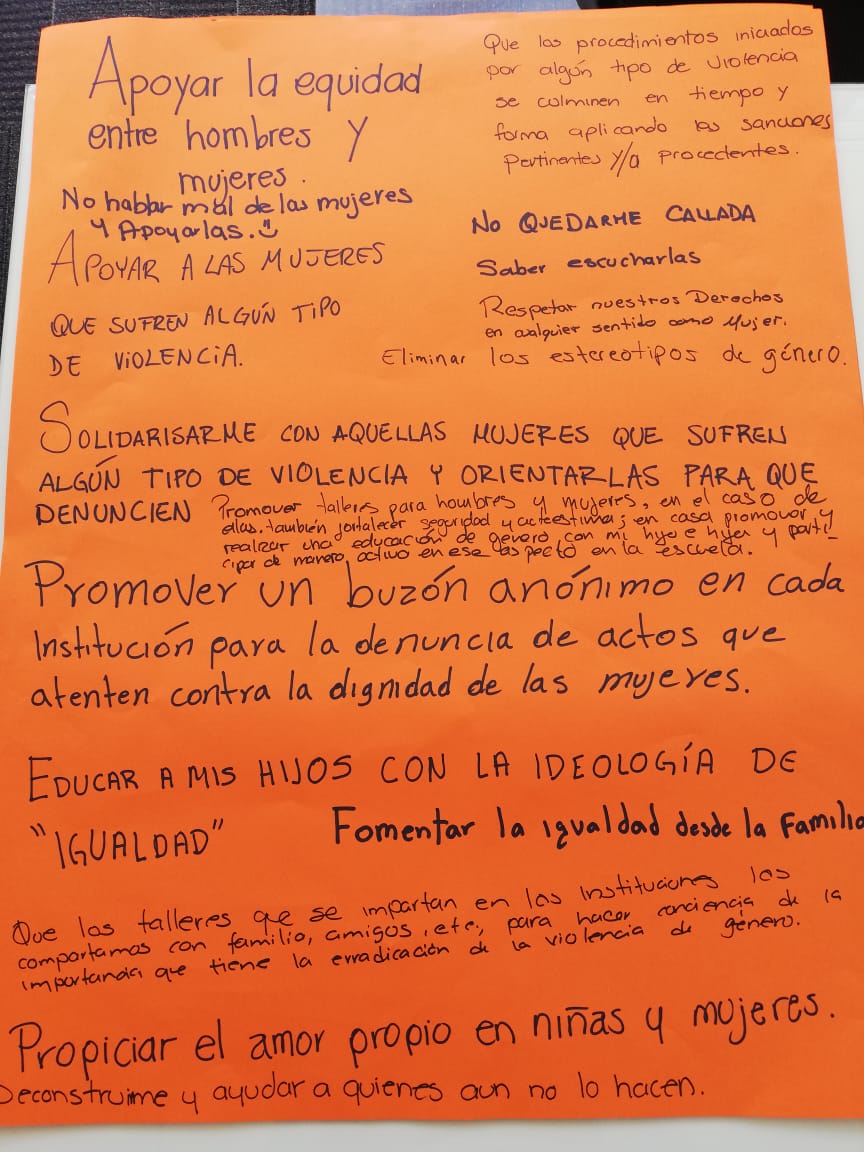 Apoyar la equidad
entre hombres y
mujeres.
No hablar mal de las mujeres
y Apoyarlas.
APOYAR A LAS MUJERES
QUE SUFREN ALGÚN TIPO
DE VIOLENCIA.
Que los procedimientos iniciados
por algún tipo de violencia
se culminen en tiempo y
forma aplicando las sanciones
pertinentes y/o procedentes.
No QUEDARME CALLADA
Saber escucharlas
Respetar nuestros Derechos
en cualquier sentido como Mujer.
Eliminar los estereotipos de género.
SOLIDARISARME CON AQUELLAS MUJERES QUE SUFREN
ALGÚN TIPO DE VIOLENCIA Y ORIENTARLAS PARA QUE
DENUNCIEN
Promover talleres para hombres y mujeres, en el caso de
ellas, también fortalecer seguridad y autoestima; en casa promover y
realizar una educación de género con mi hijo e hija y parti-
cipar de manera activo en ese aspecto en la escuela.
Promover un buzón anónimo en cada
Institución para la denuncia de actos que
atenten contra la dignidad de las mujeres.
EDUCAR A MIS HIJOS CON LA IDEOLOGÍA DE
"IGUALDAD"
Fomentar la igualdad desde la Familia
Que los talleres que se impartan en las Instituciones los
compartamos con familia, amigos, etc., para hacer conciencia de la
importancia que tiene la erradicación de la violencia de género.
Propiciar el amor propio en niñas y mujeres.
Deconstruirme y ayudar a quienes aun no lo hacen.